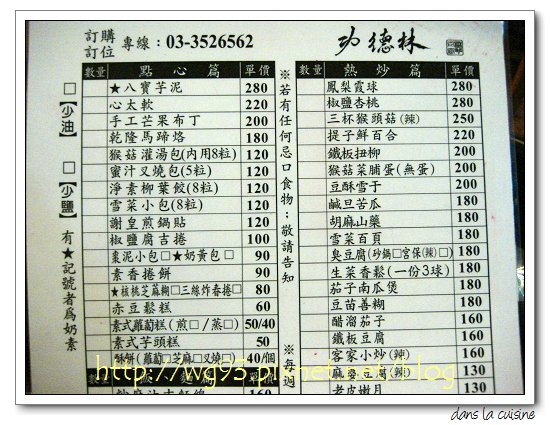 訂購
訂位 專線：03-3526562
功德林
數量 點心篇 單價
★八寶芋泥 280
心太軟 220
手工芒果布丁 200
乾隆馬蹄烙 180
猴菇灌湯包(內用8粒) 120
蜜汁叉燒包(5粒) 120
淨素柳葉餃(8粒) 120
雪菜小包(8粒) 120
謝皇煎鍋貼 120
椒鹽腐吉捲 100
棗泥小包□★奶黃包□ 90
素香捲餅 90
★核桃芝麻糊□三絲炸春捲□ 80
赤豆鬆糕 60
素式蘿蔔糕(煎□/蒸□) 50/40
素式芋頭糕 50
酥餅(蘿蔔□芝麻□叉燒□) 40/個
數量 熱炒篇 單價
鳳梨霞球 280
椒鹽杏桃 280
三杯猴頭菇(辣) 250
提子鮮百合 220
鐵板扭柳 200
猴菇菜脯蛋(無蛋) 200
豆酥雪于 200
鹹旦苦瓜 180
胡麻山藥 180
雪菜百頁 180
臭豆腐(砂鍋□宮保(辣)□) 180
生菜香鬆(一份3球) 180
茄子南瓜煲 180
豆苗善糊 180
醋溜茄子 160
鐵板豆腐 160
客家小炒(辣) 160
麻婆豆腐(辣) 130
老皮嫩月 130
□【少油】 □【少鹽】 有★記號者為奶素
※若有任何忌口食物：敬請告知
※每週
http://wg95.pixnet.net/blog
dans la cuisine